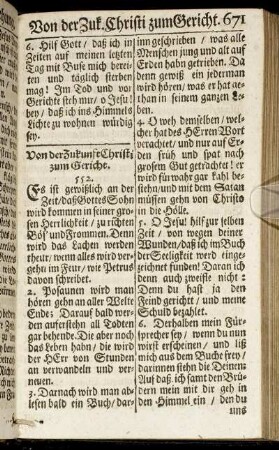 Von der Zuk. Christi zum Gericht. 671
6. Hilf Gott/ daß ich in
Zeiten auf meinen letzten
Tag mit Buß mich berei-
ten und täglich sterben
mag! Im Tod und vor
Gerichte steh mir/ o Jesu!
bey/ daß ich ins Himmels
Lichte zu wohnen würdig
sey.
Von der Zukunfft Christi
zum Gerichte.
552.
Es ist gewißlich an der
Zeit/ daß Gottes Sohn
wird kommen in seiner gros-
sen Herrlichkeit/ zu richten
Böß und Frommen. Denn
wird das Lachen werden
theur/ wenn alles wird ver-
gehn im Feur/ wie Petrus
davon schreibet.
2. Posaunen wird man
hören gehn an aller Welte
Ende; Darauf bald wer-
den auferstehn all Todten
gar behende. Die aber noch
das Leben habn/ die wird
der HErr von Stunden
an verwandeln und ver-
neuen.
3. Darnach wird man ab-
lesen bald ein Buch/ dar-
inn geschrieben/ was alle
Menschen jung und alt auf
Erden habn getrieben. Da
denn gewiß ein jederman
wird hören/ was er hat ge-
than in seinem ganzen Le-
ben.
4. O weh demselben/ wel-
cher hat des HErren Wort
verachtet/ und nur auf Er-
den früh und spat nach
grossem Gut getrachtet! er
wird fürwahr gar kahl be-
stehn/ und mit dem Satan
müssen gehn von Christo
in die Hölle.
5. O JEsu hilf zur selben
Zeit/ von wegen deiner
Wunden/ daß ich im Buch
der Seeligkeit werd einge-
zeichnet funden! Daran ich
denn auch zweifle nicht:
Denn du hast ja den
Feind gericht/ und meine
Schuld bezahlet.
6. Derhalben mein Für-
sprecher sey/ wenn du nun
wirst erscheinen/ und ließ
mich aus dem Buche frey/
darinnen stehn die Deinen:
Auf daß ich samt den Brü-
dern mein mit dir geh in
den Himmel ein/ den du
uns